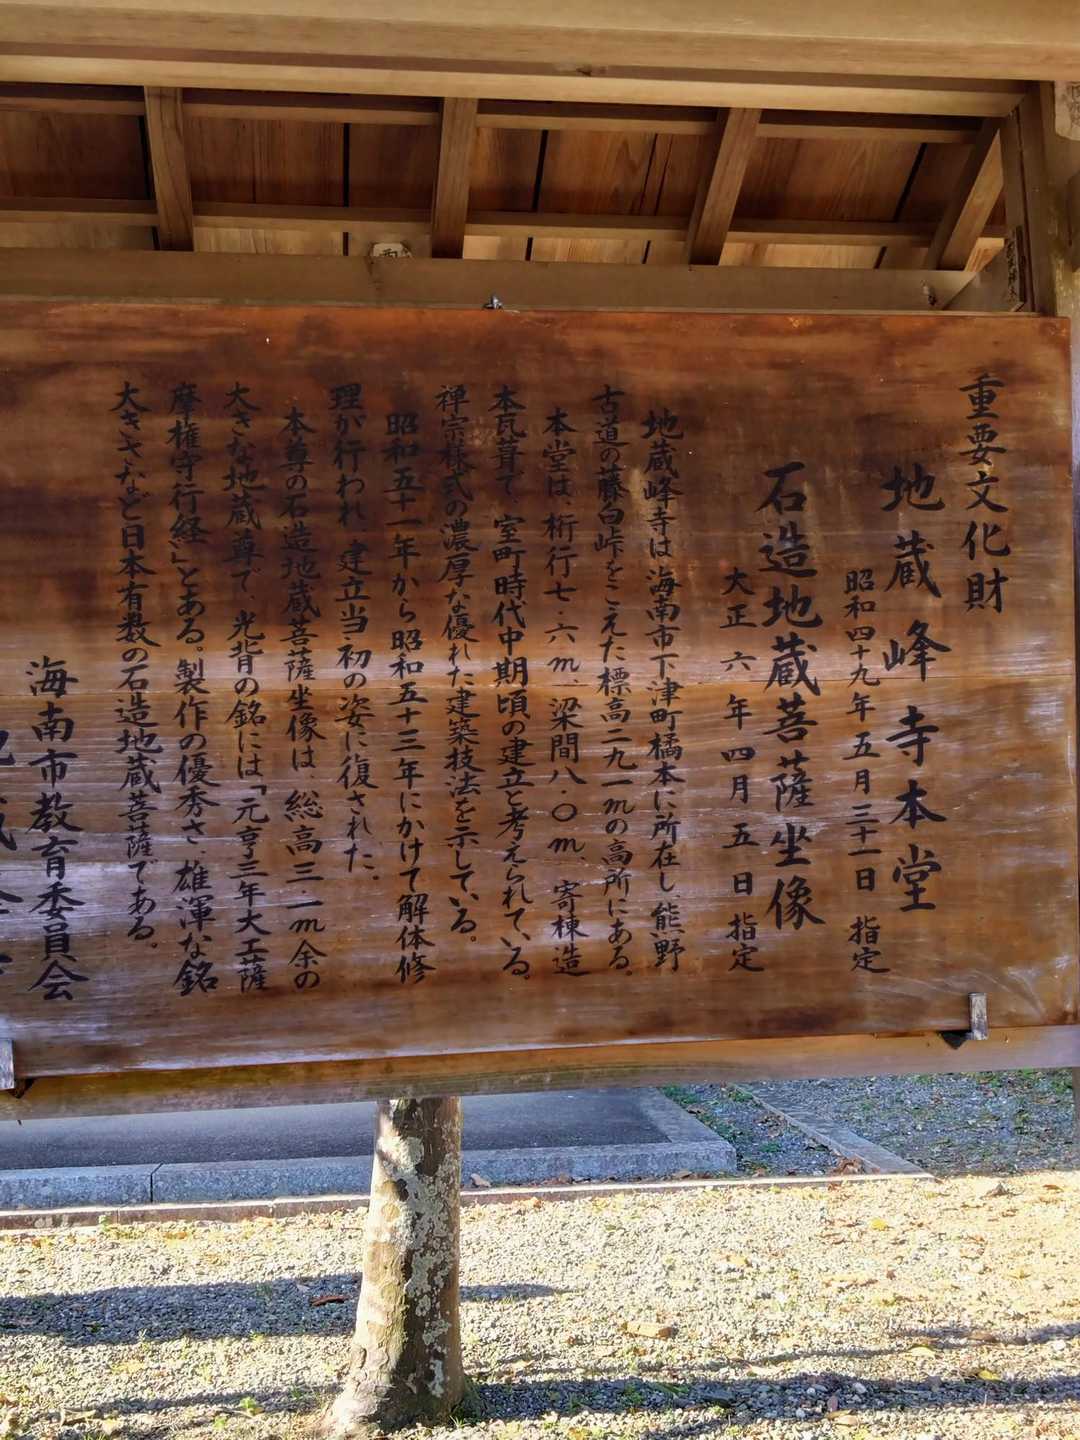 重要文化財
地蔵峰寺本堂
昭和四十九年五月三十一日 指定
石造地蔵菩薩坐像
大正 六 年 四 月 五 日 指定
地蔵峰寺は海南市下津町橘本に所在し、熊野
古道の藤白峠をこえた標高二九一mの高所にある。
本堂は、桁行七・六m、梁間八・〇m、寄棟造
本瓦葺で、室町時代中期頃の建立と考えられている。
禅宗様式の濃厚な優れた建築技法を示している。
昭和五十一年から昭和五十三年にかけて解体修
理が行われ、建立当初の姿に復された。
本尊の石造地蔵菩薩坐像は、総高三・一m余の
大きな地蔵尊で、光背の銘には「元亨三年大工薩
摩権守行経」とある。製作の優秀さ、雄渾な銘
大きさなど日本有数の石造地蔵菩薩である。
海南市教育委員会